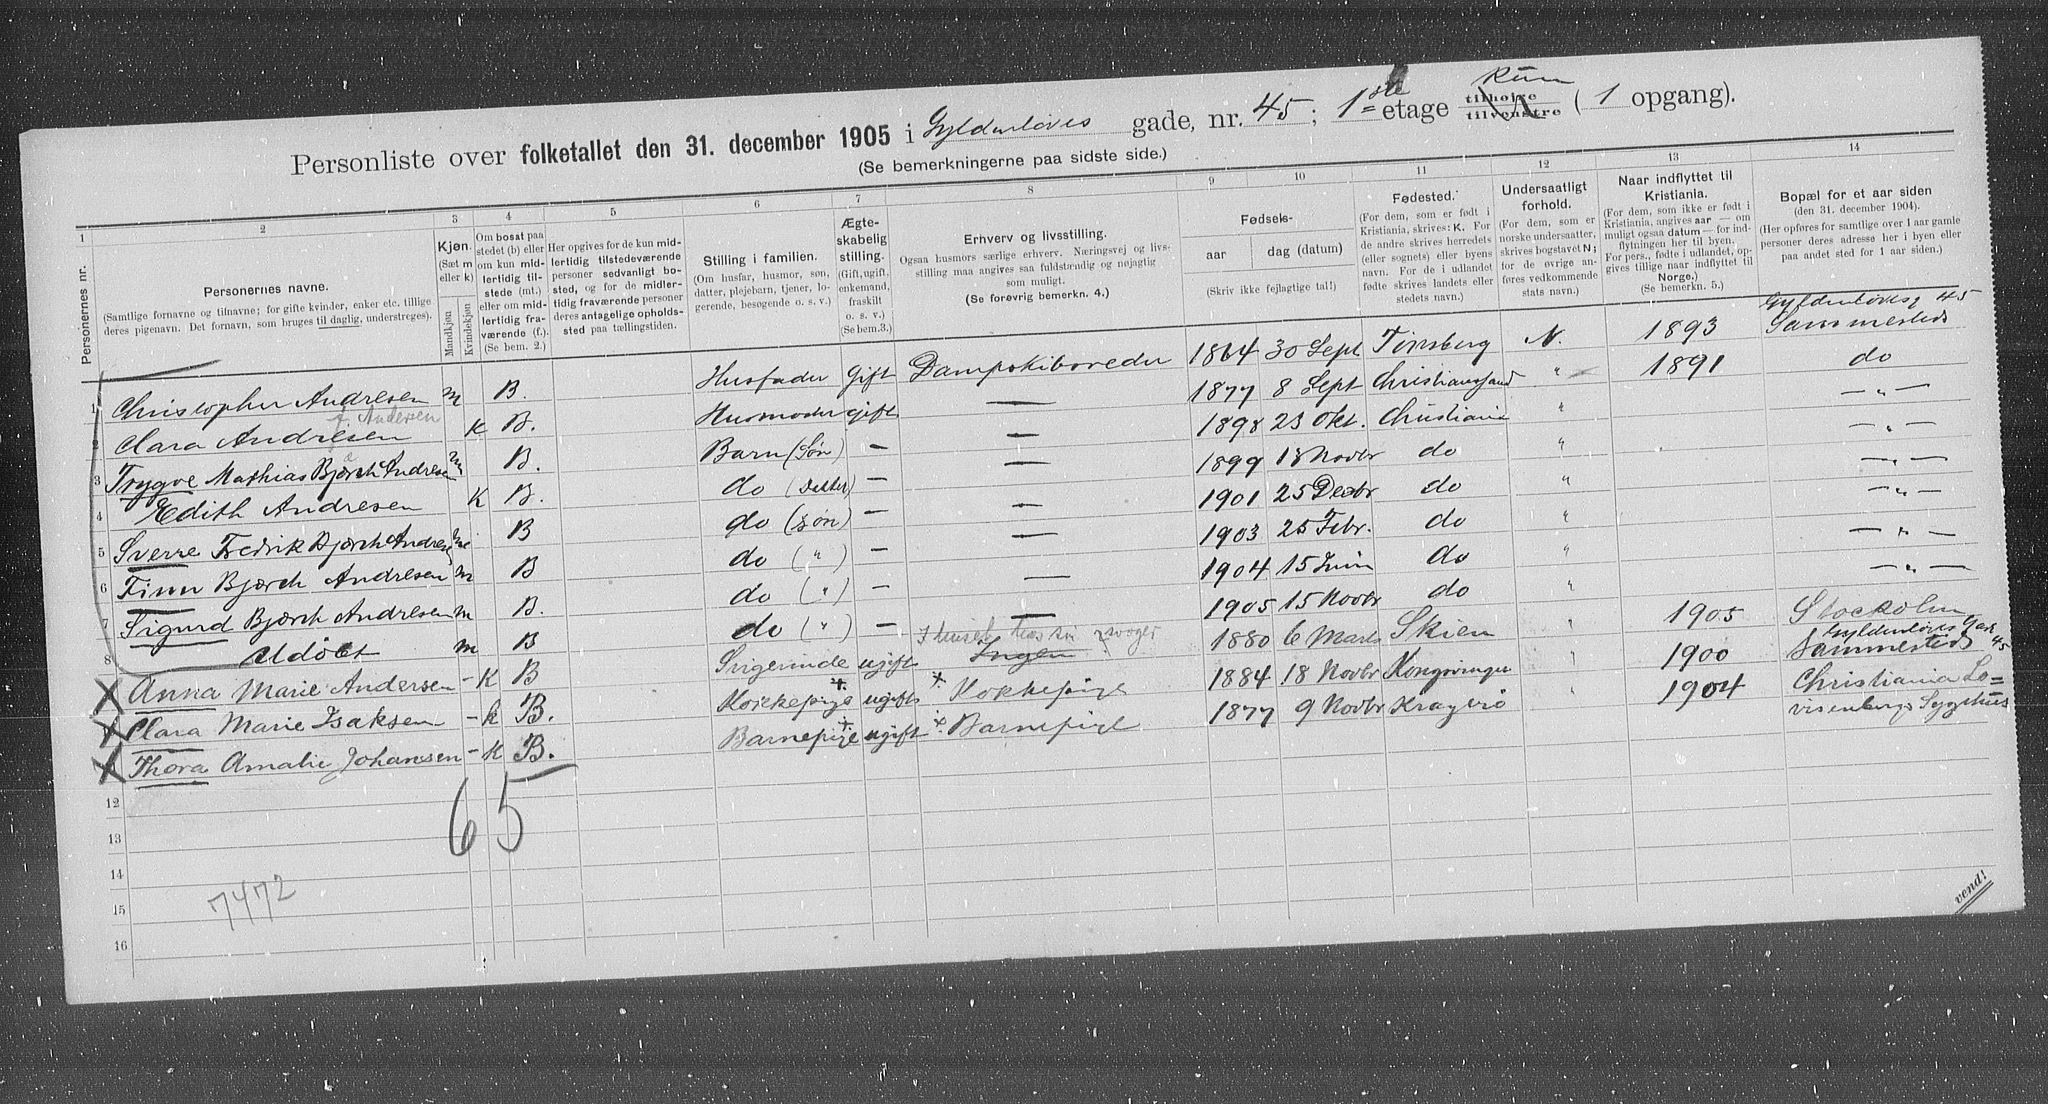 Personliste over folketallet den 31. december 1905 i Gyldenløves gade, nr. 45; 1ste etage tilhøire tilvenstre Kun (1 opgang).
(Se bemerkningerne paa sidste side.)
1 2 3 4 5 6 7 8 9 10 11 12 13 14
Personernes nr.
Personernes navne.
(Samtlige fornavne og tilnavne; for gifte kvinder, enker etc. tillige deres pigenavn. Det fornavn, som bruges til daglig, understreges).
Kjøn. (Sæt m eller k) Mandkjøn Kvindekjøn
Om bosat paa stedet (b) eller om kun midlertidig tilstede (mt.) eller om midlertidig fraværende (f.) (Se bem. 2.)
Her opgives for de kun midlertidig tilstedeværende personer sedvanligt bosted, og for de midlertidig fraværende personer deres antagelige opholdssted paa tællingstiden.
Stilling i familien.
(Om husfar, husmor, søn, datter, plejebarn, tjener, logerende, besøgende o. s. v.)
Ægteskabelig stilling.
(Gift, ugift, enkemand, fraskilt o. s. v.) (Se bem. 3.)
Erhverv og livsstilling.
Ogsaa husmors særlige erhverv. Næringsvej og livsstilling maa angives saa fuldstændig og nøjagtig som muligt.
(Se forøvrig bemerkn. 4.)
Fødsels- aar dag (datum)
(Skriv ikke fejlagtige tal!)
Fødested.
(For dem, som er født i Kristiania, skrives: K. For de andre skrives herredets (eller sognets) eller byens navn. For de i udlandet fødte skrives landets eller stedets navn.)
Undersaatligt forhold.
(For dem, som er norske undersaatter, skrives bogstavet N; for de øvrige anføres vedkommende stats navn.)
Naar indflyttet til Kristiania.
(For dem, som ikke er født i Kristiania, angives aar — om muligt ogsaa datum — for indflytningen her til byen. For pers., fødte i udlandet, opgives tillige naar indflyttet til Norge.)
(Se bemerkn. 5.)
Bopæl for et aar siden
(den 31. december 1904).
(Her opføres for samtlige over 1 aar gamle personer deres adresse her i byen eller paa andet sted for 1 aar siden.)
1 Christopher Andresen m B. Husfader Gift Dampskibsreder 1864 30 Sept Tønsberg N. 1893 Gyldenløvesg 45 Sammesteds
2 Clara Andresen f. Andersen K B. Husmoder gift — 1877 8 Sept Christianssand " 1891 do
3 Trygve Mathias Bjørch Andresen m B. Barn (Søn) — — 1898 23 Okt. Christiania " — " —
4 Edith Andresen K B. do (Datter) — — 1899 18 Novbr do " — " —
5 Sverre Fredrik Bjørch Andresen m B do (søn) — — 1901 25 Decbr do " — " —
6 Finn Bjørch Andresen m B do (") — — 1903 25 Febr. do " — " —
7 Sigurd Bjørch Andresen m B. do (") — — 1904 15 Juni do " — " —
8 Udöbt m B do (") — — 1905 15 Novbr do " — " —
Anna Marie Andersen - K B Svigerinde ugift I huset hos sin svoger Ingen 1880 6 Marts Skien " 1905 Stockolm
Clara Marie Isaksen - k B. Kokkepige ugift Kokkepige 1884 18 Novbr Kongsvinger " 1900 Gyldenløves Gade 45 Sammesteds
Thora Amalie Johansen - K B. Barnepige ugift Barnepige 1877 9 Novbr Kragerö " 1904 Christiania Lovisenbergs Sygehus
12
13
14
15
16
6 5
7472
vend!